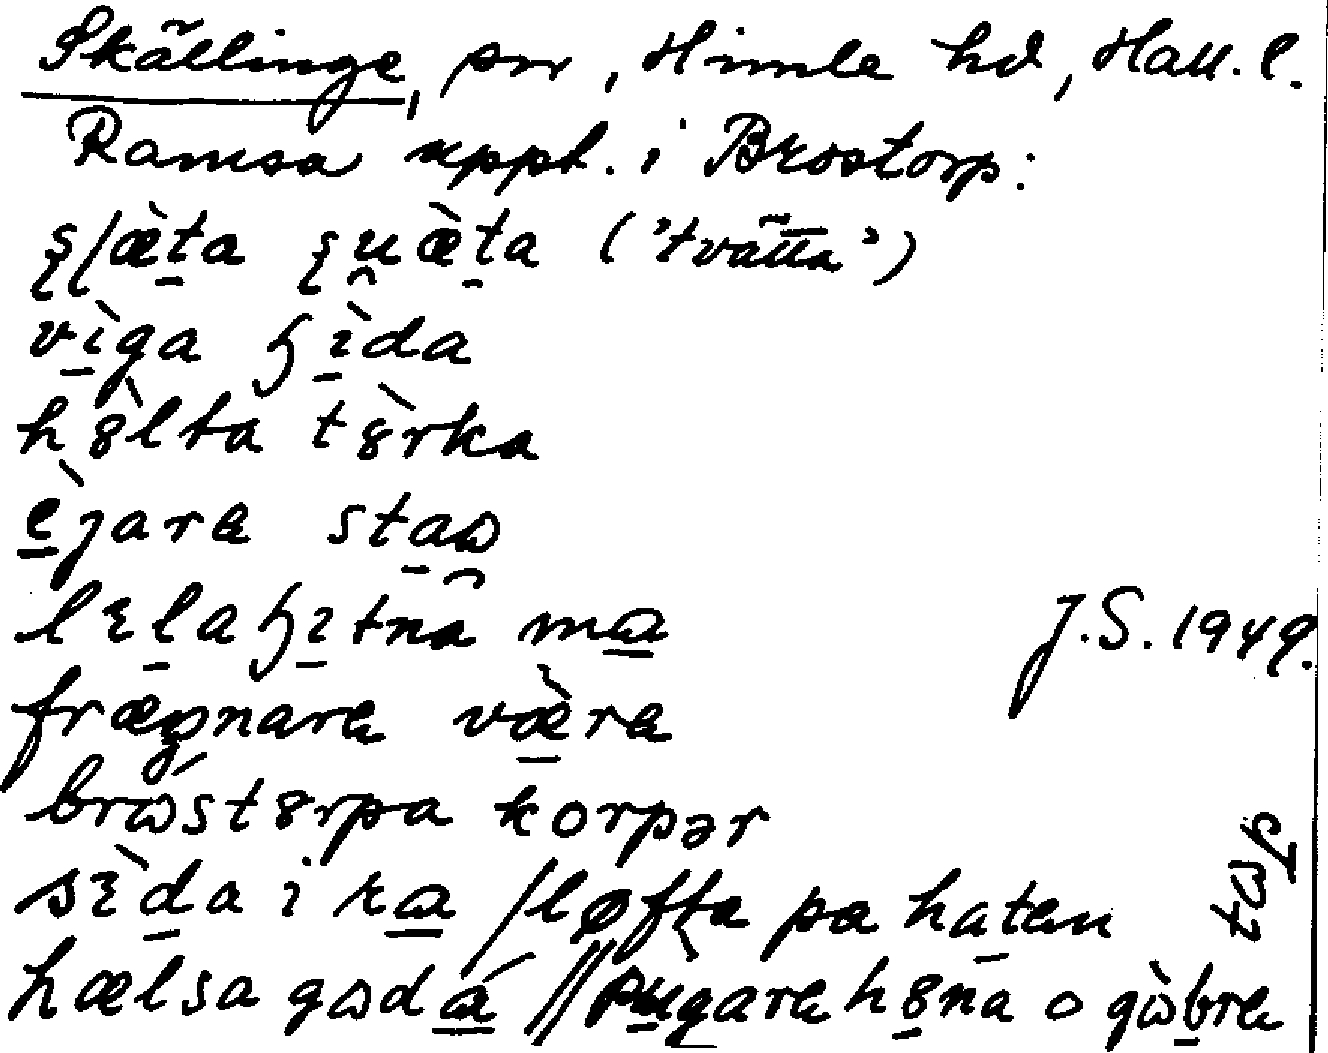 Skällinge, sn, Himle hd, Hall. l.
Ramsa uppt. i Brostorp:
ʂʃæ̀ta ʂu̯æ̀ta ('tvätta')
vìga ɧìda
hɞ̀lta tɞ̀rka
èjara staɷ
lɛlaɧɩtna ma
fræŋnara væ̀ra
brɷ́stɞrpa korpər
sɛ̀da i ra / løfta pa haten
hælsa gɷdá // pùgara hɞna o gɷ̀bra
J.S. 1949.